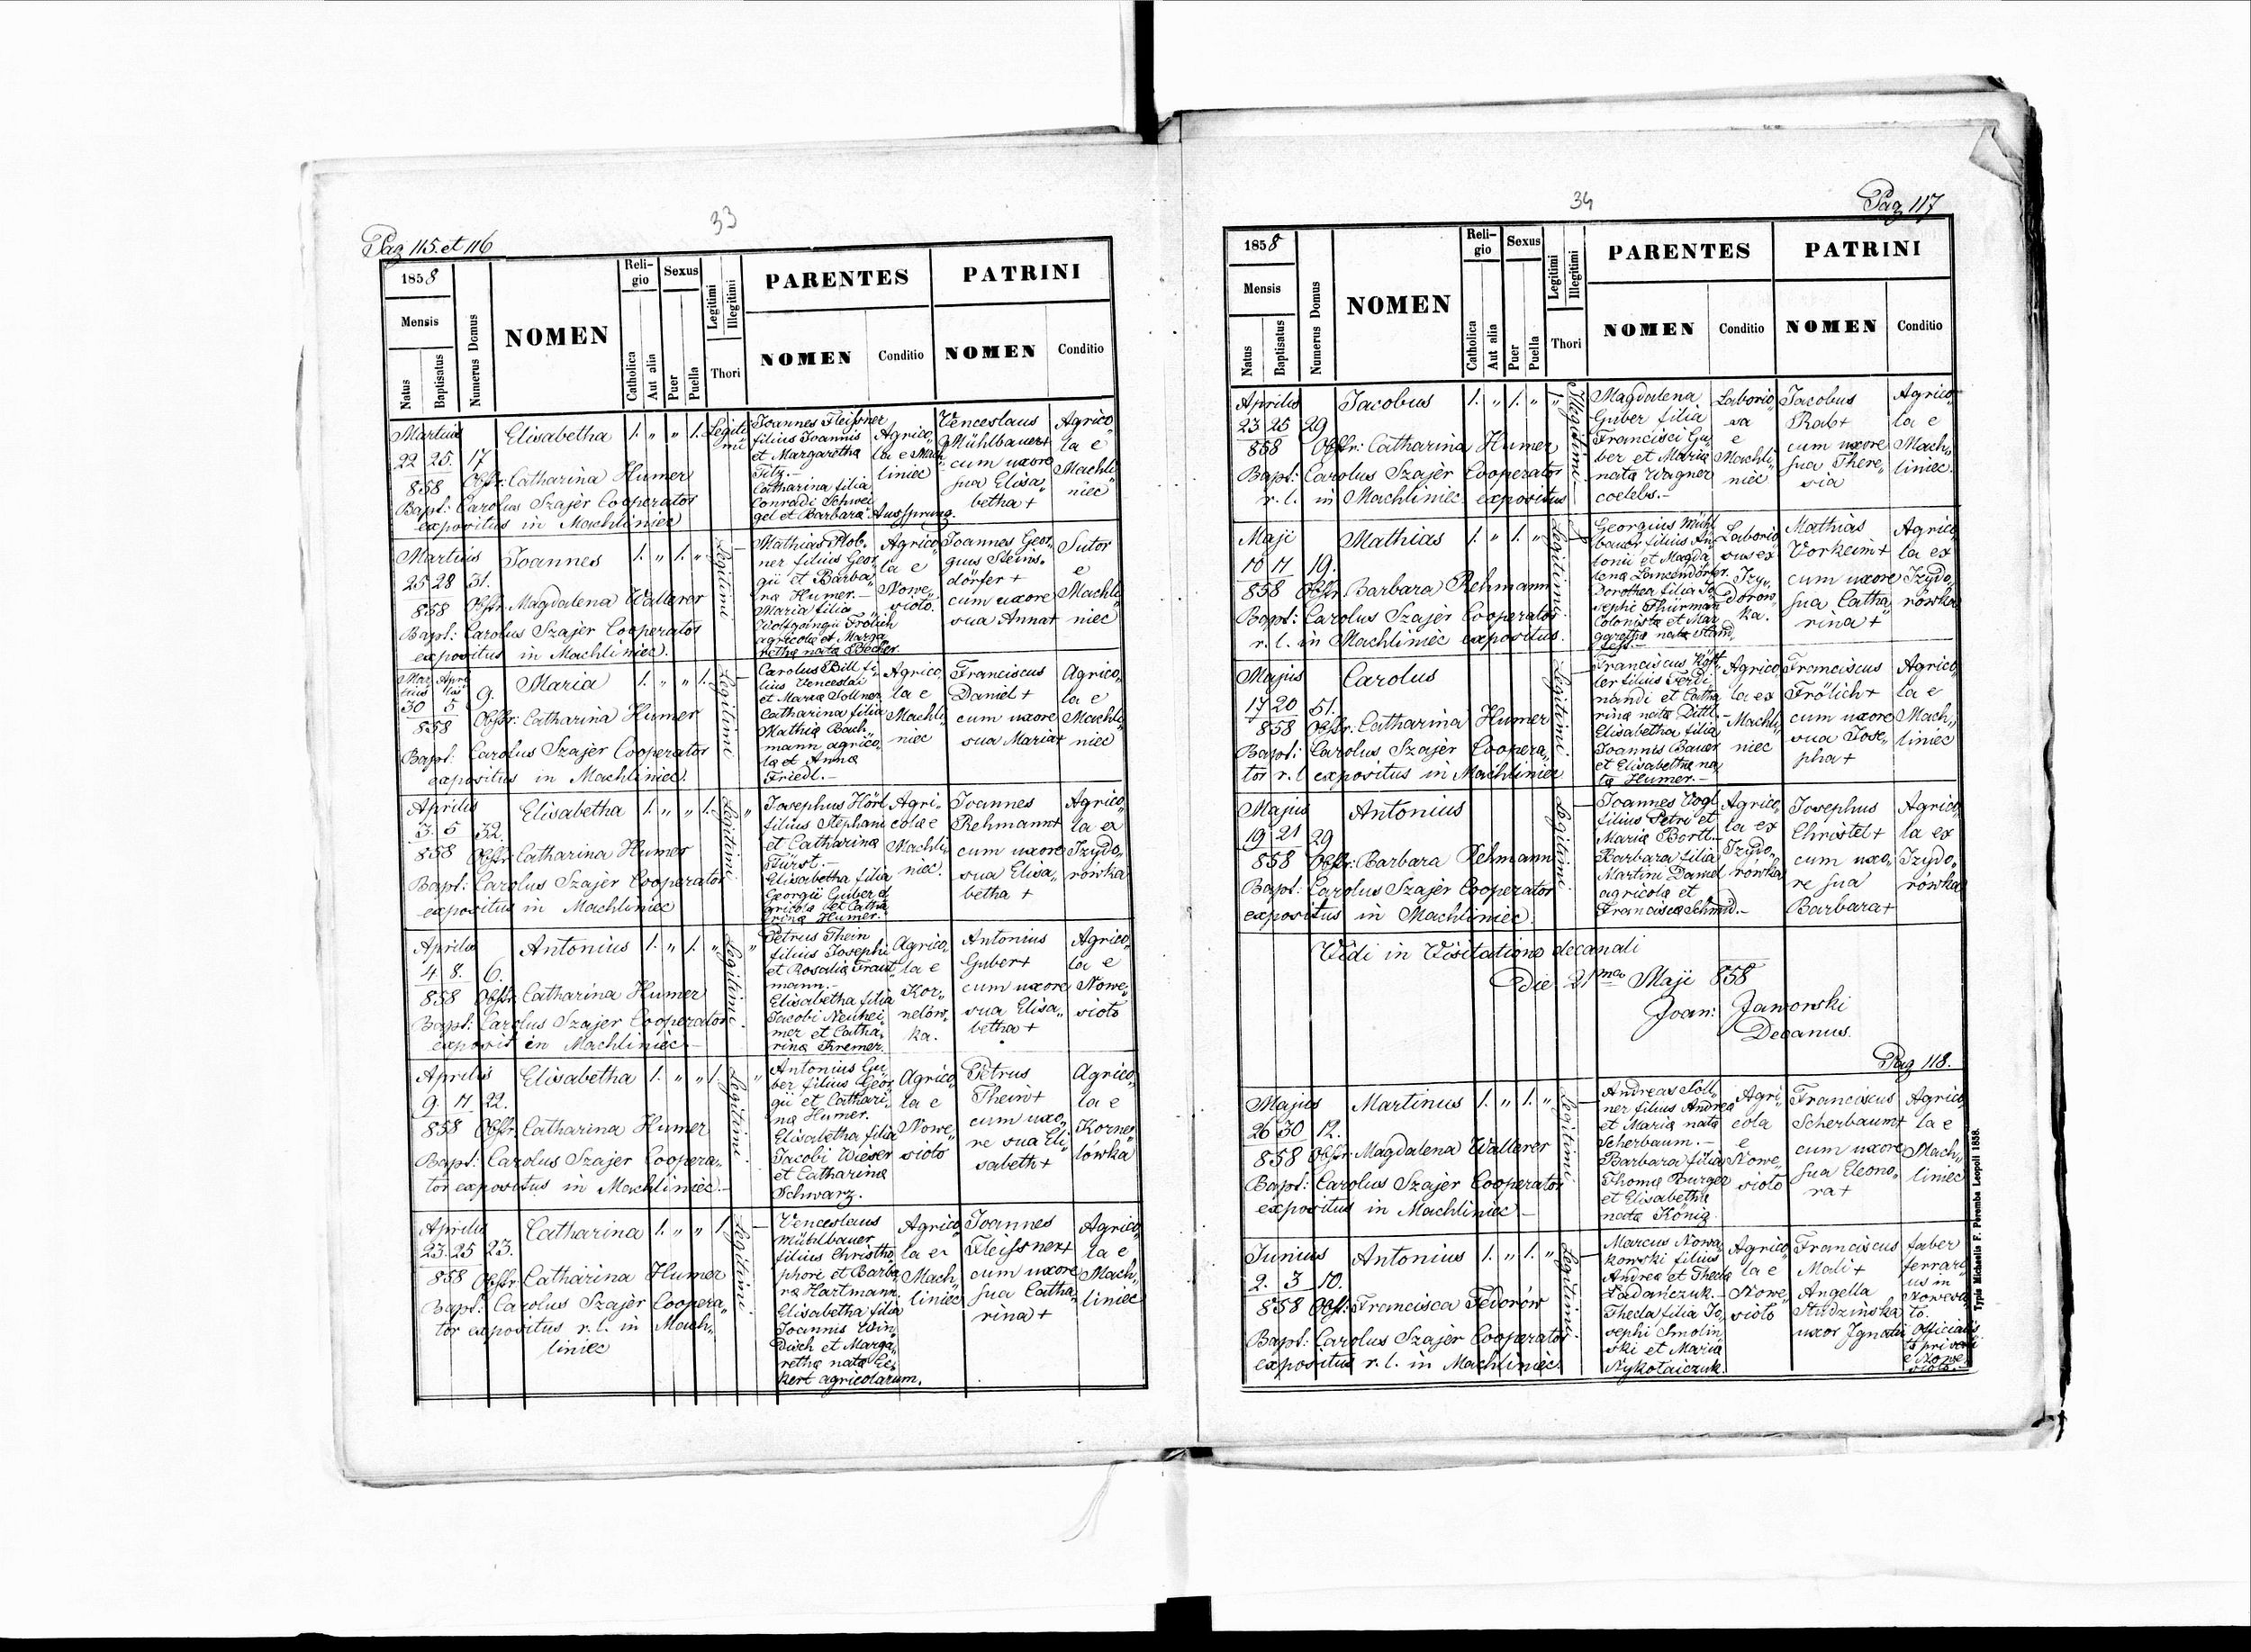 33
Pag 115. et 116
1858
Mensis
Natus
Baptisatus
Numerus Domus
NOMEN
Religio
Catholica
Aut alia
Sexus
Puer
Puella
Legitimi
Illegitimi
Thori
PARENTES
NOMEN
Conditio
PATRINI
NOMEN
Conditio
Martius
22 25. 17
858
Elisabetha 1. „ „ 1. Legiti
mi
Obstr: Catharina Humer
Bapt: Carolus Szajer Cooperator
expositus in Machliniec
Joannes Fleissner
filius Joannis
et Margaretha
Titz.-
Catharina filia
Conradi Schwei
gel et Barbara Aussprung.
Agrico„
la e Mach„
liniec
Venceslaus
Mühlbauer+
cum uxore
sua Elisa„
betha +
Agrico„
la e
Machli„
niec
Martius
25 28 31.
858
Joannes 1. „ 1. „ Legitimi
Obstr: Magdalena Wallerer
Bapt: Carolus Szajer Cooperator
expositus in Machliniec.
Mathias
ner filius Geor„
gii et Barba„
ra Humer.-
Maria filia
Wolfgangi Frölich
agricolae et Marga
retha nata Becher.
Agrico„
la e
Nowe„
sioło.
Joannes Geor„
gius Steins„
dörfer +
cum uxore
sua Anna+
Sutor
e
Machli„
niec
Mar„ Apri
tius lis
30 5 9.
858
Maria 1. „ „ 1. Legitimi
Obstr: Catharina Humer
Bapt: Carolus Szajer Cooperator
expositus in Machliniec.
Carolus Bill fi„
lius Venceslai
et Maria Sollner
Catharina filia
Mathiæ Bach„
mann agrico„
læ et Anna
Friedl.-
Agrico„
la e
Machli„
niec
Franciscus
Daniel +
cum uxore
sua Maria+
Agrico„
la e
Machli„
niec
Aprilis
3. 5 32.
858
Elisabetha 1. „ „ 1. Legitimi „
Obstr: Catharina Humer
Bapt: Carolus Szajer Cooperator
expositus in Machliniec
Josephus Hörl
filius Stephani
et Catharina
Fürst.-
Elisabetha filia
Georgii Guber a
gricolæ et Catha
rina Humer.-
Agri„
cola e
Machli„
niec.
Joannes
Rehmann+
cum uxore
sua Elisa„
betha +
Agrico„
la ex
Izydo„
rówka
Aprilis
4 8. 6.
858
Antonius 1. „ 1. „ Legitimi „
Obstr: Catharina Humer
Bapt: Carolus Szajer Cooperator
exposit in Machliniec.-
Petrus Thein
filius Josephi
et Rosalia Traut
mann.-
Elisabetha filia
Jacobi Neuhei„
mer et Catha„
rina Kremer.
Agrico„
la e
Kor„
nelów„
ka.
Antonius
Guber+
cum uxore
sua Elisa„
betha +
Agrico„
la e
Nowe„
sioło
Aprilis
9. 11 22.
858
Elisabetha 1. „ „ 1. Legitimi „
Obstr: Catharina Humer
Bapt: Carolus Szajer Coopera„
tor expositus in Machliniec.-
Antonius Gu„
ber filius Geor„
gii et Cathari„
na Humer.
Elisabetha filia
Jacobi Wieser
et Catharina
Schwarz.
Agrico„
la e
Nowe„
sioło
Petrus
Thein+
cum uxo„
re sua Eli„
sabeth+
Agrico„
la e
Korne„
lówka
Aprilis
23. 25 23.
858
Catharina 1. „ „ 1. Legitimi
Obstr: Catharina Humer
Bapt: Carolus Szajer Coopera„
tor expositus r. l. in Mach„
liniec
Venceslaus
Mühlbauer
filius Christho„
phori et Barba
ra Hartmann.
Elisabetha filia
Joannis Win„
disch et Marga„
retha nata Ec„
kert agricolarum.
Agrico„
la ex
Mach„
liniec
Joannes
Fleissner+
cum uxore
sua Catha„
rina +
Agrico„
la e
Mach„
liniec
34
Pag 117
1858
Mensis
Natus
Baptisatus
Numerus Domus
NOMEN
Religio
Catholica
Aut alia
Sexus
Puer
Puella
Legitimi
Illegitimi
Thori
PARENTES
NOMEN
Conditio
PATRINI
NOMEN
Conditio
Aprilis
23 25 29
858
Jacobus 1. „ 1. „ 1. Illegitimi
Obstr: Catharina Humer
Bapt: Carolus Szajer Cooperator
r. l. in Machliniec expositus
Magdalena
Guber filia
Francisci Gu„
ber et Maria
nata Wagner
coelebs.-
Laborio„
sa
e
Machli„
niec
Jacobus
Rab+
cum uxore
sua There„
sia
Agrico„
la e
Mach„
liniec.
Maji
10 11 19.
858
Mathias 1. „ 1. „ Legitimi
Obstr: Barbara Rehmann
Bapt: Carolus Szajer Cooperator
r. l. in Machliniec expositus.
Georgius Mühl
bauer filius An„
tonii et Magda
lena Lanzendörfer.
Dorothea filia Jo„
sephi Thürman
Colonistæ et Mar
garetha nata
Laborio
sus ex
Izy„
dorów„
ka.
Mathias
Vorheim+
cum uxore
sua Catha„
rina +
Agrico„
la ex
Izydo„
rówka
Majus
17 20 51.
858
Carolus Legitimi
Obstr: Catharina Humer
Bapt: Carolus Szajer Coopera„
tor r. l expositus in Machliniec
Franciscus Köst„
ler filius Ferdi„
nandi et Catha„
rina nata Dittl.-
Elisabetha filia
Joannis Bauer
et Elisabetha na„
ta Humer.-
Agrico„
la ex
Machli„
niec
Franciscus
Frölich+
cum uxore
sua Jose„
pha +
Agrico„
la e
Mach„
liniec
Majus
19 21 29
858
Antonius Legitimi
Obstr: Barbara Rehmann
Bapt: Carolus Szajer Cooperator
expositus in Machliniec.
Joannes Vogl
filius Petri et
Maria Bortl.-
Barbara filia
Martini Daniel
agricolæ et
Francisca Schmid.-
Agrico„
la ex
Izydo„
rówka
Josephus
Christel+
cum uxo„
re sua
Barbara+
Agrico„
la ex
Izydo„
rówka
Vidi in Visitatione decanali
Die 21ma Maji 858
Joan: Jaworski
Decanus.
Pag 118.
Majus
26 30 12.
858
Martinus 1. „ 1. „ Legitimi
Obstr: Magdalena Wallerer
Bapt: Carolus Szajer Cooperator
expositus in Machliniec -
Andreas Soll„
ner filius Andreæ
et Maria nata
Scherbaum.-
Barbara filia
Thomæ Burger
et Elisabetha
nata König.
Agri„
cola
e
Nowe„
sioło
Franciscus
Scherbaum+
cum uxore
sua Eleono„
ra +
Agrico„
la e
Mach„
liniec
Junius
2. 3 10.
858
Antonius 1. „ 1. „ Legitimi
Obst: Francisca Fedorów
Bapt: Carolus Szajer Cooperator
expositus r. l. in Machliniec.
Marcus Nowa„
kowski filius
Andreæ et Thecla
Ładańczuk.-
Thecla filia Jo„
sephi Smolin„
ski et Maria
Nykołaiczuk.
Agrico„
la e
Nowe„
sioło
Franciscus
Mali +
Angella
Studzińska
uxor Ignatii
faber
ferrari„
us in
Nowesio„
ło.
Officialis
ts privati
e Nowe„
sioło.-
Typis Michaelis F. Poremba Leopoli 1858.